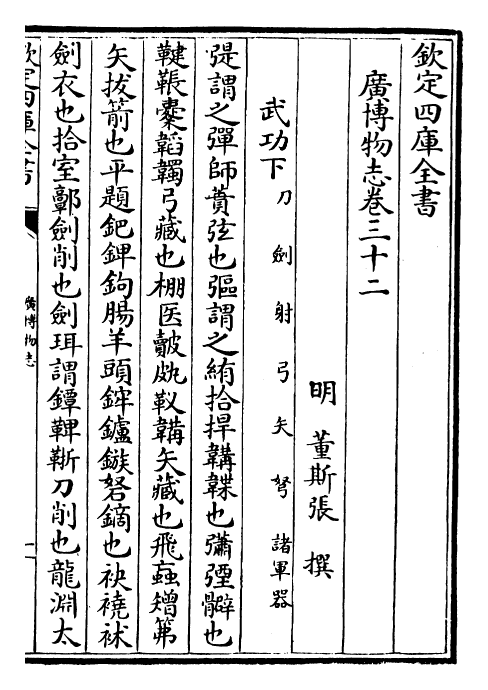 欽定四庫全書
廣博物志卷三十二
明 董斯張 撰
武功下 刀 劍 射 弓 矢 弩 諸軍器
弲謂之彈師蕡弦也彄謂之絠拾捍韝韘也彇弬也
鞬韔櫜韜韣弓藏也棚医皾靫韝矢藏也飛䖝矰笰
矢拔箭也平題鈀錍鉤腸羊頭鏃砮鏑也袂襓袜
劍衣也拾室鄣劍削也劍珥謂鐔鞞靳刀削也龍淵太
欽定四庫全書
廣博物志
一